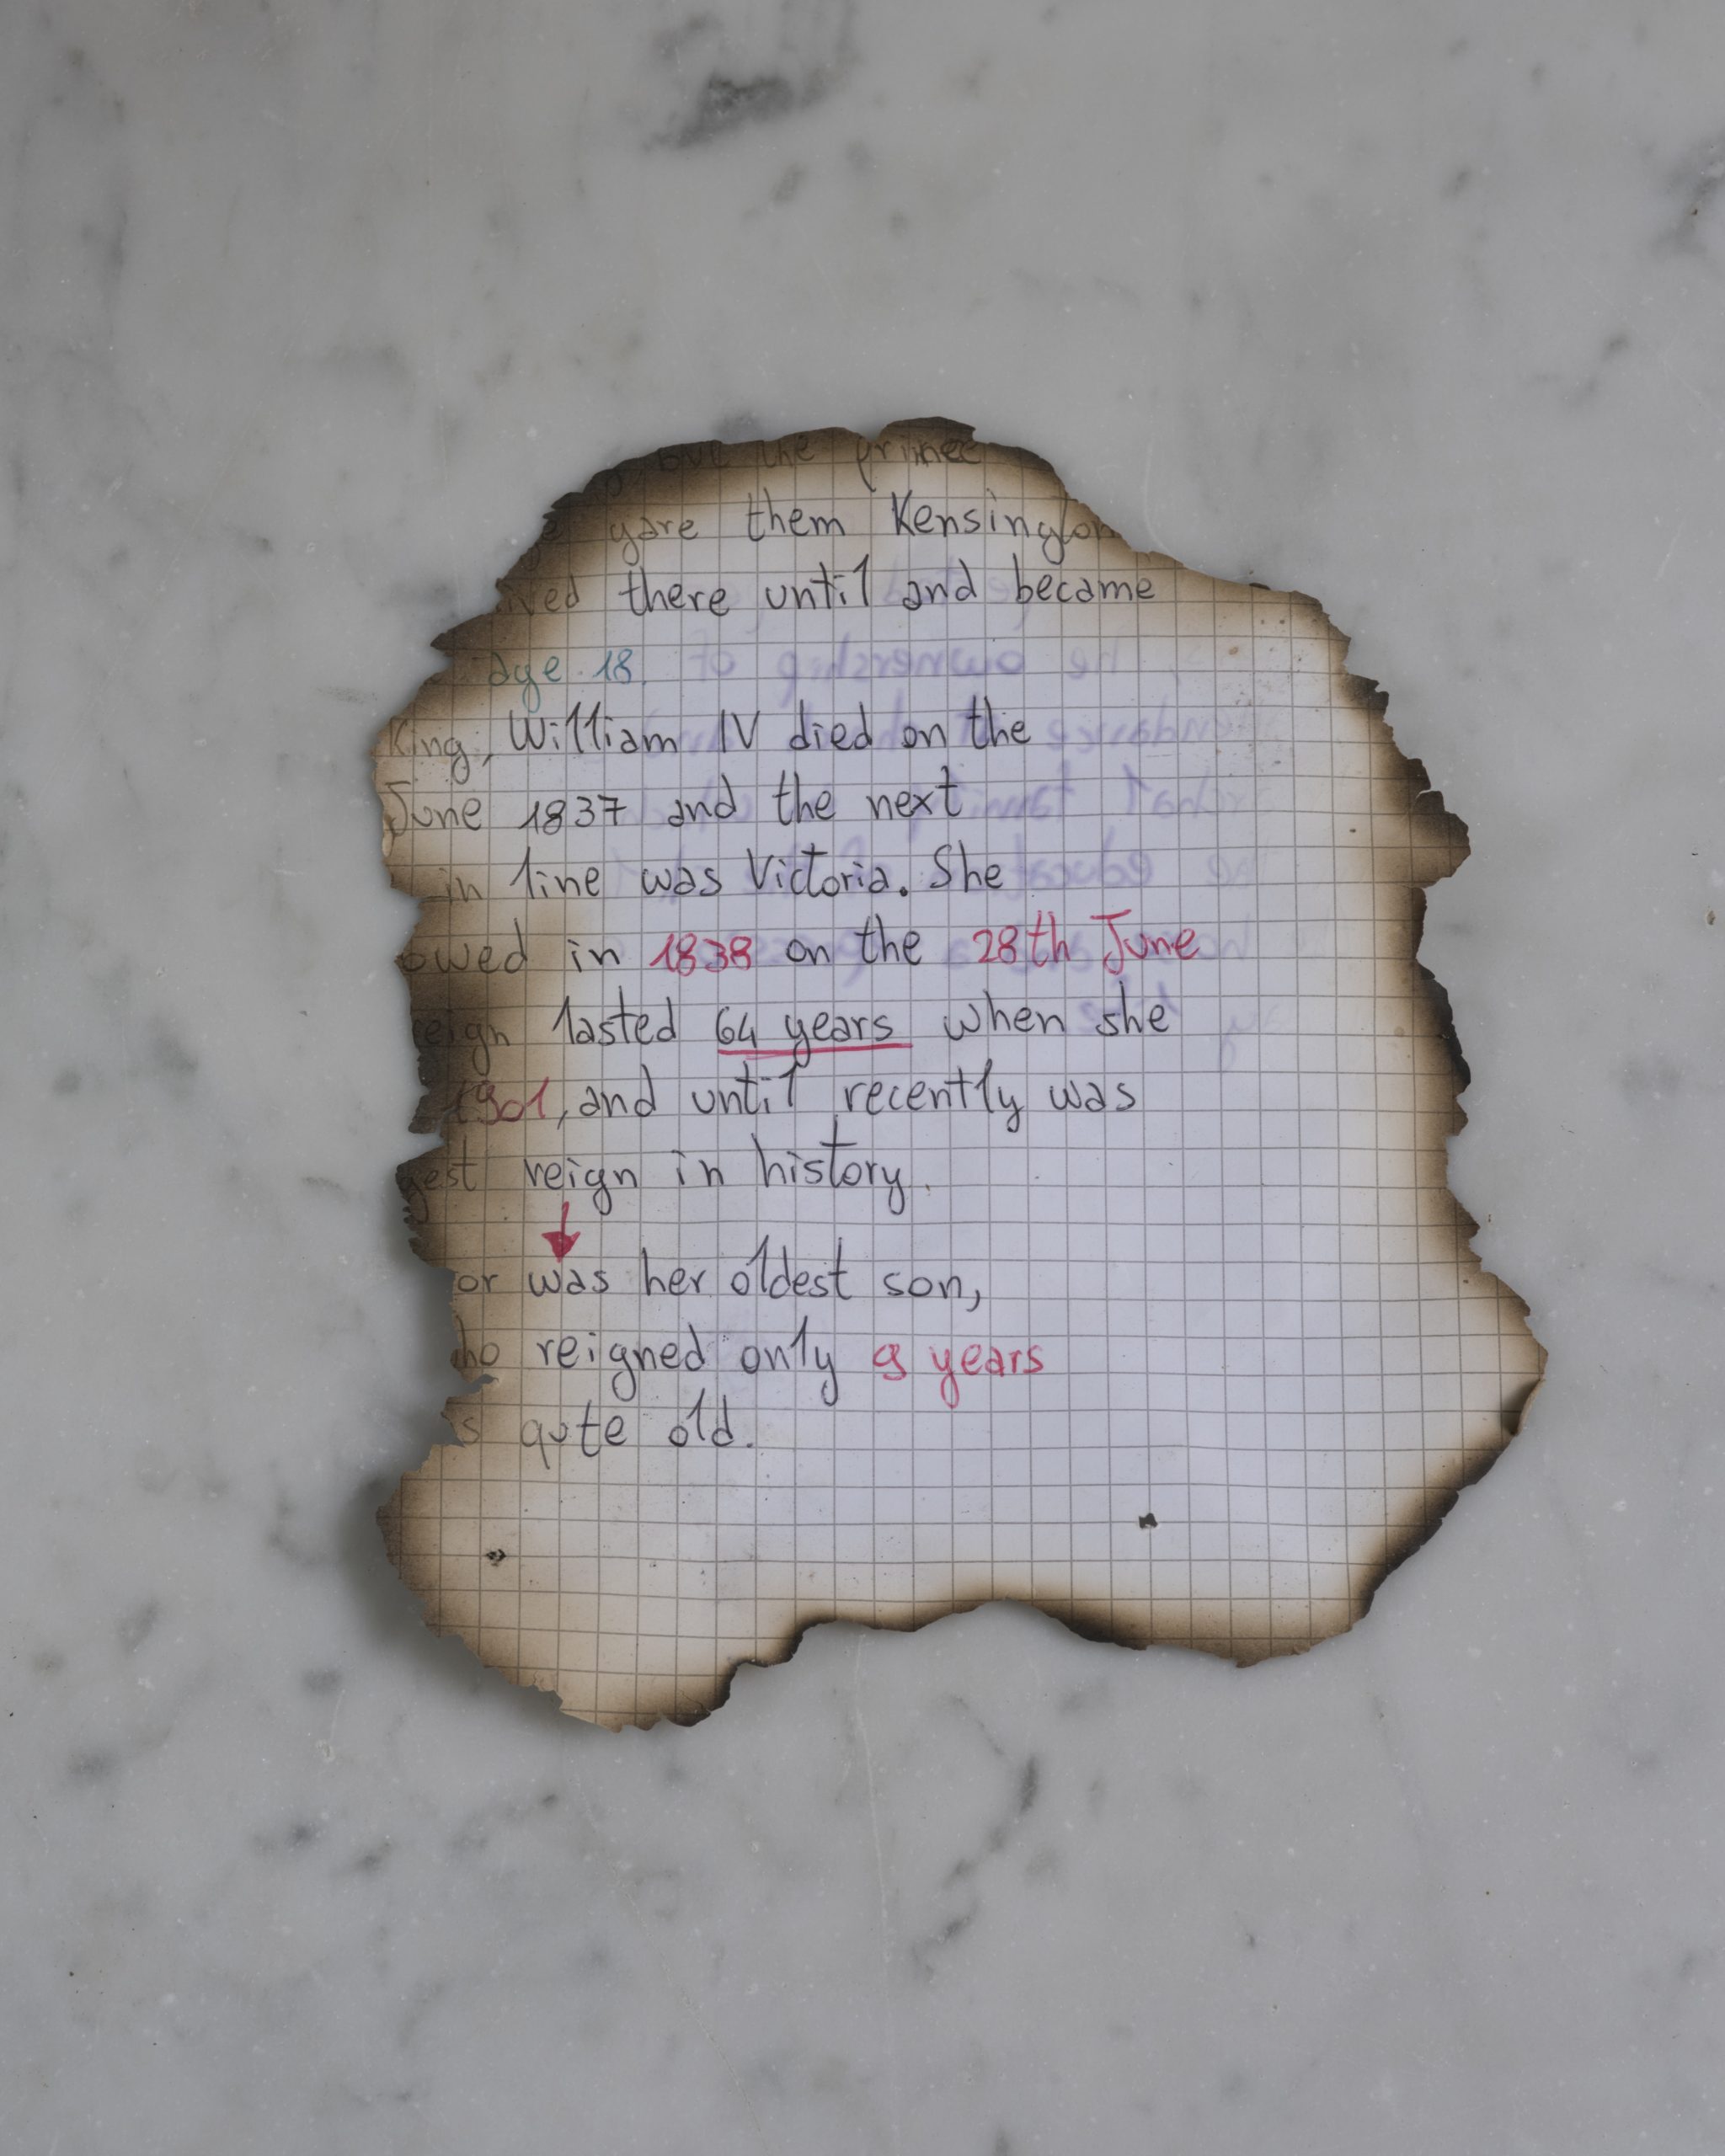 but the prince
gave them Kensington
there until and became
age 18.
King, William IV died on the
June 1837 and the next
in line was Victoria. She
owed in 1838 on the 28th June
eign lasted 64 years when she
1901, and until recently was
gest reign in history.
or was her oldest son,
ho reigned only 9 years
s qute old.